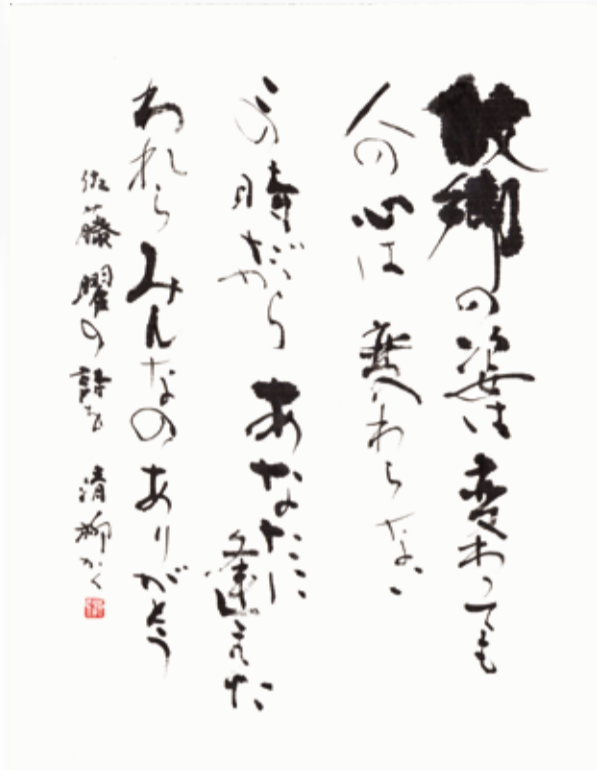 故郷の姿は変わっても
人の心は変わらない
この時だからあなたに逢えた
われらみんなのありがとう
佐藤曜の詩を 清柳かく